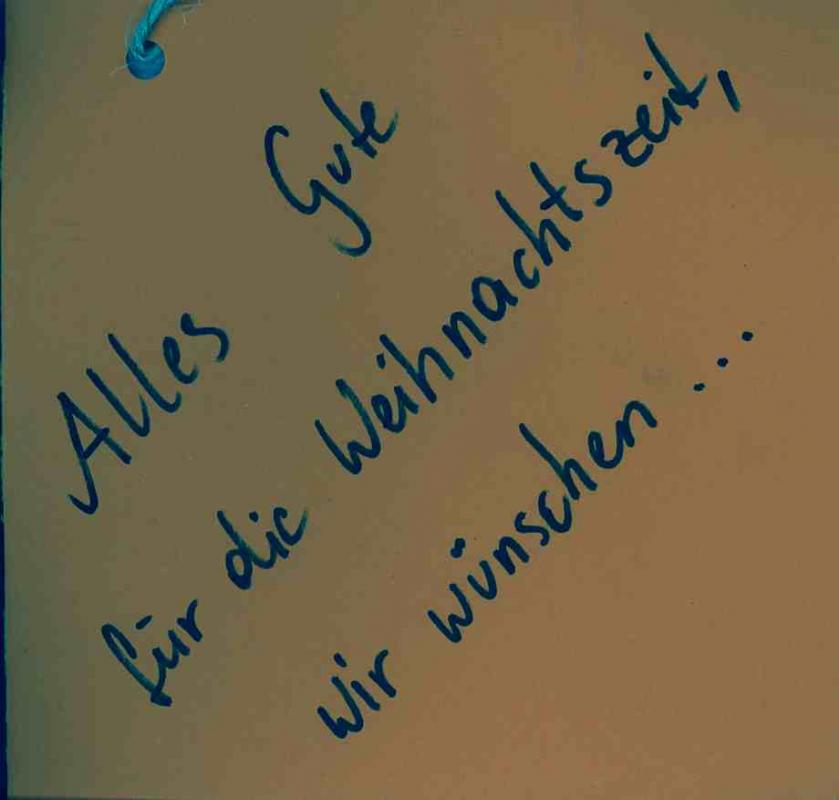 Alles Gute
für die Weihnachtszeit,
wir wünschen ...